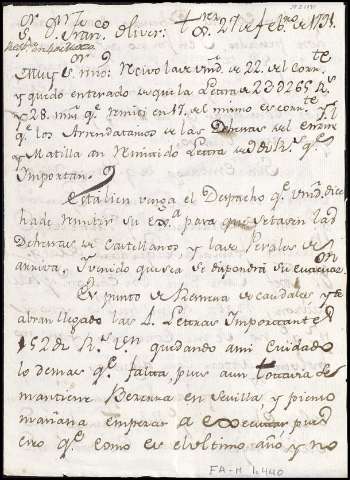 Sr. Dn. Franco. Oliver: 27 de febro. de 1791.
Muy Sr. mio: Recivo la de Vmd. de 22. del corrte.
y quedo enterado de que la Letra de 232265 Rs.
y 28. mrs. qe. remiti en 17. del mismo
qe. los Arrendatarios de las Dehesas del
y Matilla an remitido Letra de Rs. qe.
Importan
Està bien venga el Despacho qe. Vmd. dice
ha de remitir su exa. para que se tasen las
Dehesas de Castellanos y las de Perales de
arriva, y venido que sea se dispondrà su
En punto de Remesa de caudales ya
abran llegado las 4. Letras Importantes
152 Rs. Vn. quedando a mi Cuidado
lo demas qe. falta, pues aun
mantiene Berzosa en Sevilla y pienso
mañana empezar a executar pues
creo qe. como es el ultimo año y no
FA-M 1.440